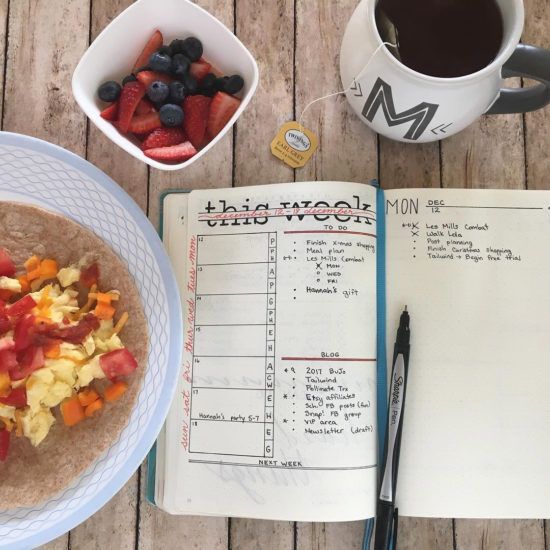 M
TWININGS
EARL GREY
this week
december 12 - 18 december
mon
tues
wed
thur
fri
sat
sun
12
13
14
15
16
17
Hannah's party 5-7
18
P
H
A
P
G
PH
E
H
A
CW
E
H
E
G
TO DO
Finish X-mas shopping
Meal plan
Les Mills Combat
X MON
WED
FRI
Hannah's gift
BLOG
2017 BuJo
Tailwind
Pollinate Trx
* Etsy affiliates
Sch. FB posts (fun)
Snap! FB group
* VIP area
Newsletter (draft)
NEXT WEEK
MON DEC
12
X Les Mills Combat
X Walk Leia
Post planning
Finish Christmas shopping
Tailwind → Begin free trial
Sharpie PEN